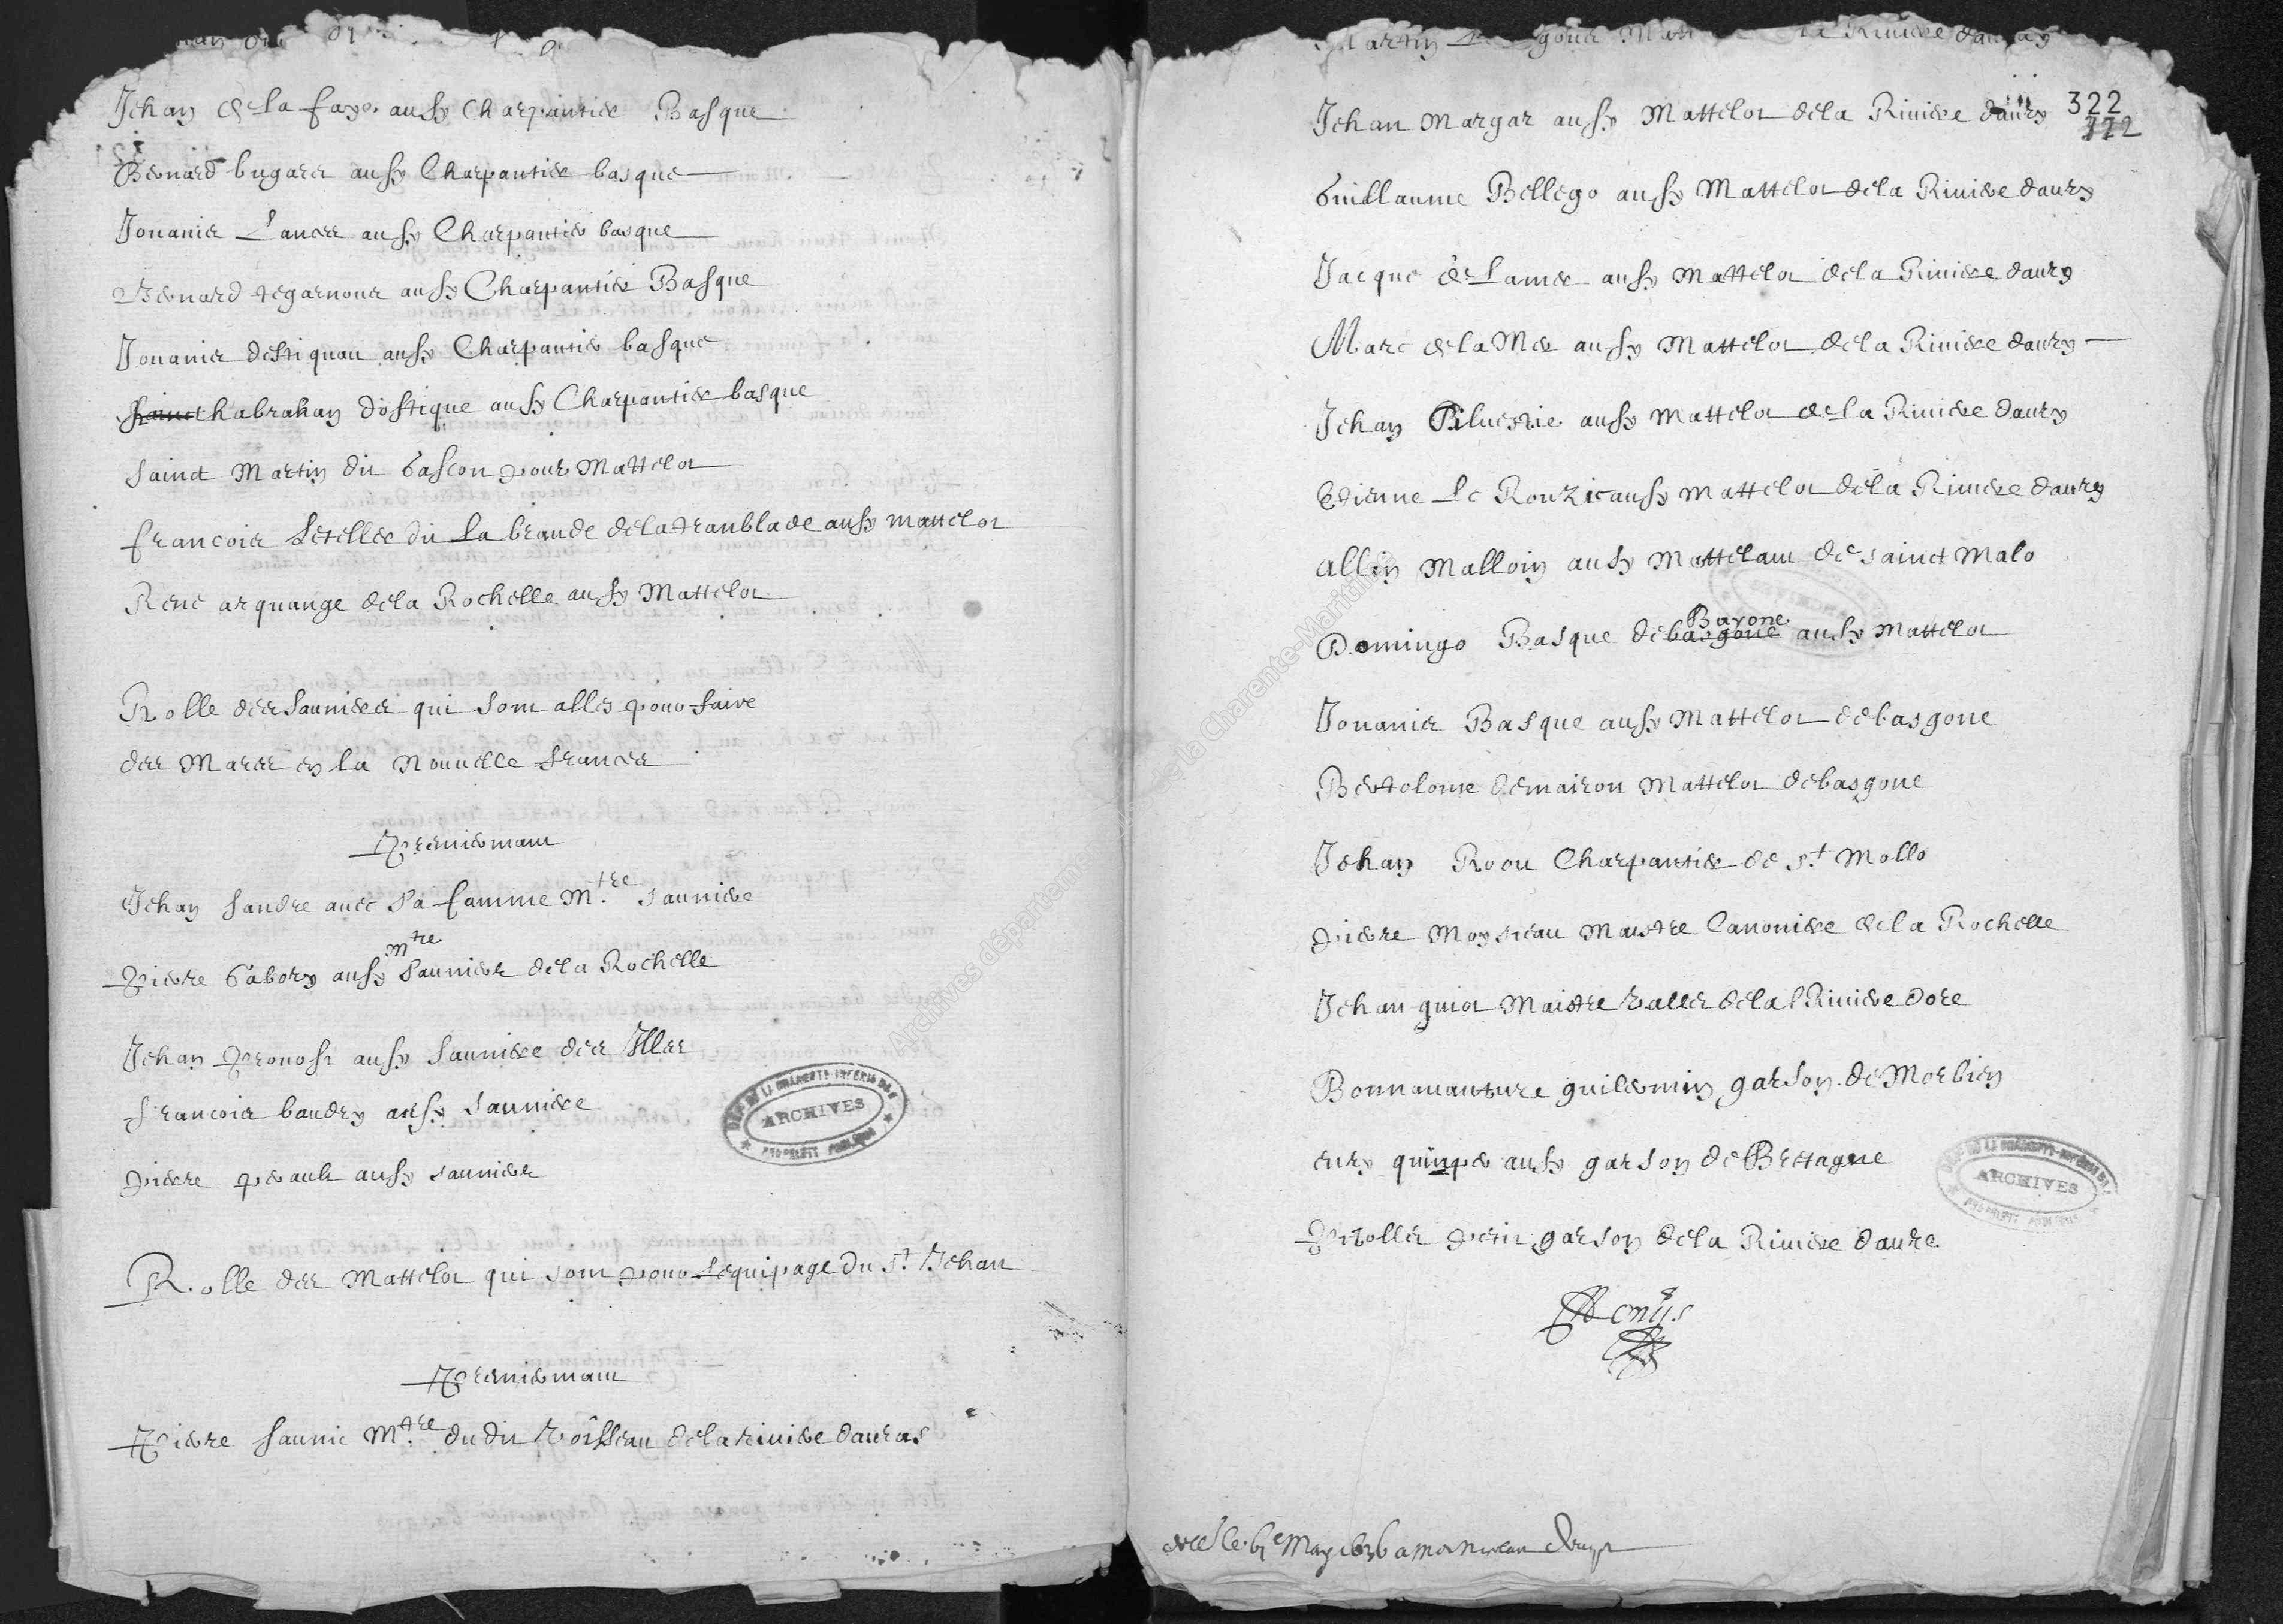 Jehan de la faye aussy Charpantier Basque
Bernard bugaret aussy Charpantier basque
Jouanis aussy Charpantier basque
Bernard aussy Charpantier Basque
Jouanis destiquau aussy Charpantier basque
habrahan dostique aussy Charpantier basque
sainct Martin dit Gascon pour Mattelot
francois letellier dit La brande dela tranblade aussy mattelot
Rene arquange dela Rochelle aussy Mattelot
Rolle des sauniers qui sont alles pour faire
des Mares en la Nouuelle france
Premiermant
Jehan sandre auec sa famme Mtre saunier
Pierre Gabory aussy mtre saunier dela Rochelle
Jehan Pronost aussy saunier des Illes
francois baudry aussy saunier
pierre perault aussy saunier
Rolle des Mattelot qui sont pour lequipage du st Jehan
Premiermant
Pierre saunic Mtre du dit voisseau dela riuiere dauras
322
112
Jehan Margar aussy Mattelot dela Riuiere daury
Guillaume Bellego aussy Mattelot dela Riuiere daury
Jacque de Lamer aussy Mattelot dela Riuiere daury
Marc dela Mer aussy Mattelot dela Riuiere daury
Jehan aussy Mattelot dela Riuiere daury
Etienne Le Rouzic aussy mattelot dela Riuiere daury
Allin Malloin aussy Mattelaut de sainct Malo
Domingo Basque de basgone Bayone aussy Mattelot
Jouanis Basque aussy Mattelot de basgone
Bertelome demairou Mattelot de basgone
Jehan Roou Charpantier de st Mallo
pierre Moysseau Maistre Canonier dela Rochelle
Jehan guiot Maistre valles dela Riuiere dore
Bonnauanture guilermin garson de Morbien
eury quinper aussy garson de Bretagne
petit garson dela Riuiere daure
Denys
ARCHIVES
ARCHIVES
Archives départementales de la Charente-Maritime